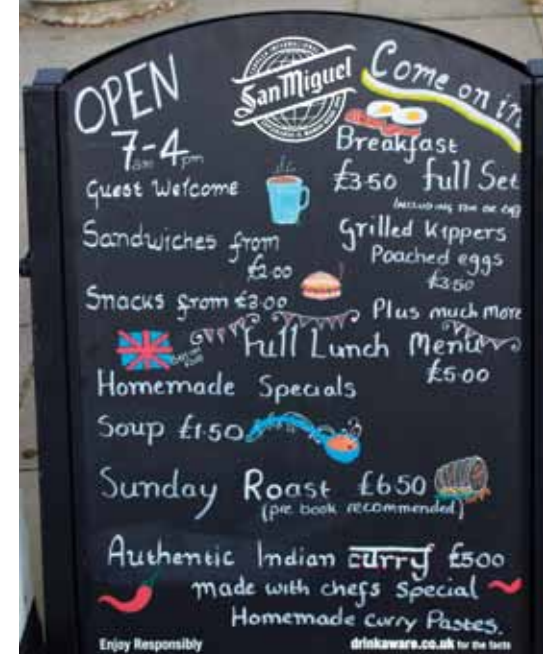 OPEN
7-4
am pm
San Miguel
Come on in
Breakfast
£3.50 full Set
Guest Welcome
Grilled Kippers
Poached eggs
£3.50
Sandwiches from
£2.00
Snacks from £3.00
Plus much more
Full Lunch Menu
£5.00
Homemade Specials
Soup £1.50
Sunday Roast £6.50
(pre book recommended)
Authentic Indian curry £5.00
made with chefs special
Homemade curry Pastes.
Enjoy Responsibly
drinkaware.co.uk for the facts